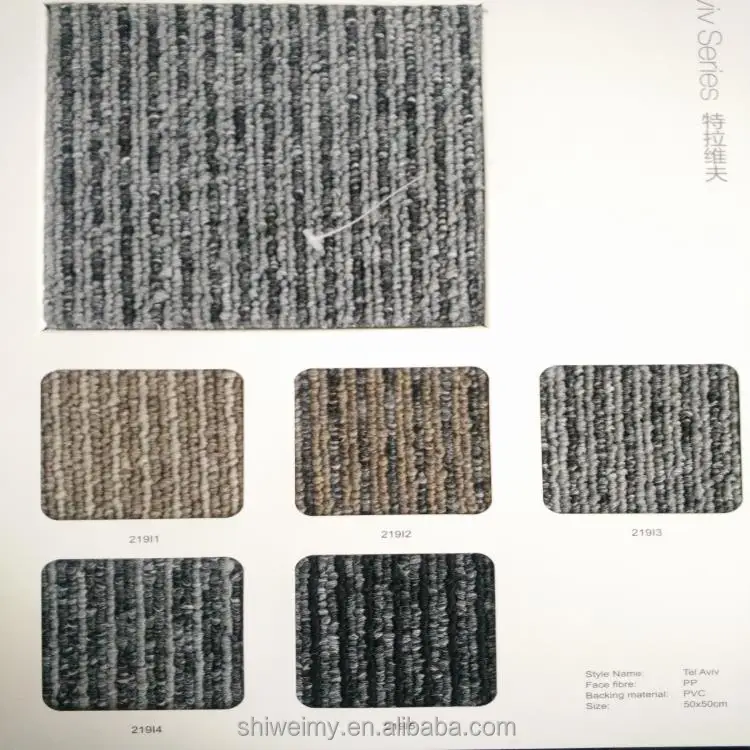 viv Series 特拉维夫
219I1
219I2
219I3
219I4
Style Name: Tel Aviv
Face fibre: PP
Backing material: PVC
Size: 50x50cm
shiweimy.en.alibaba.com